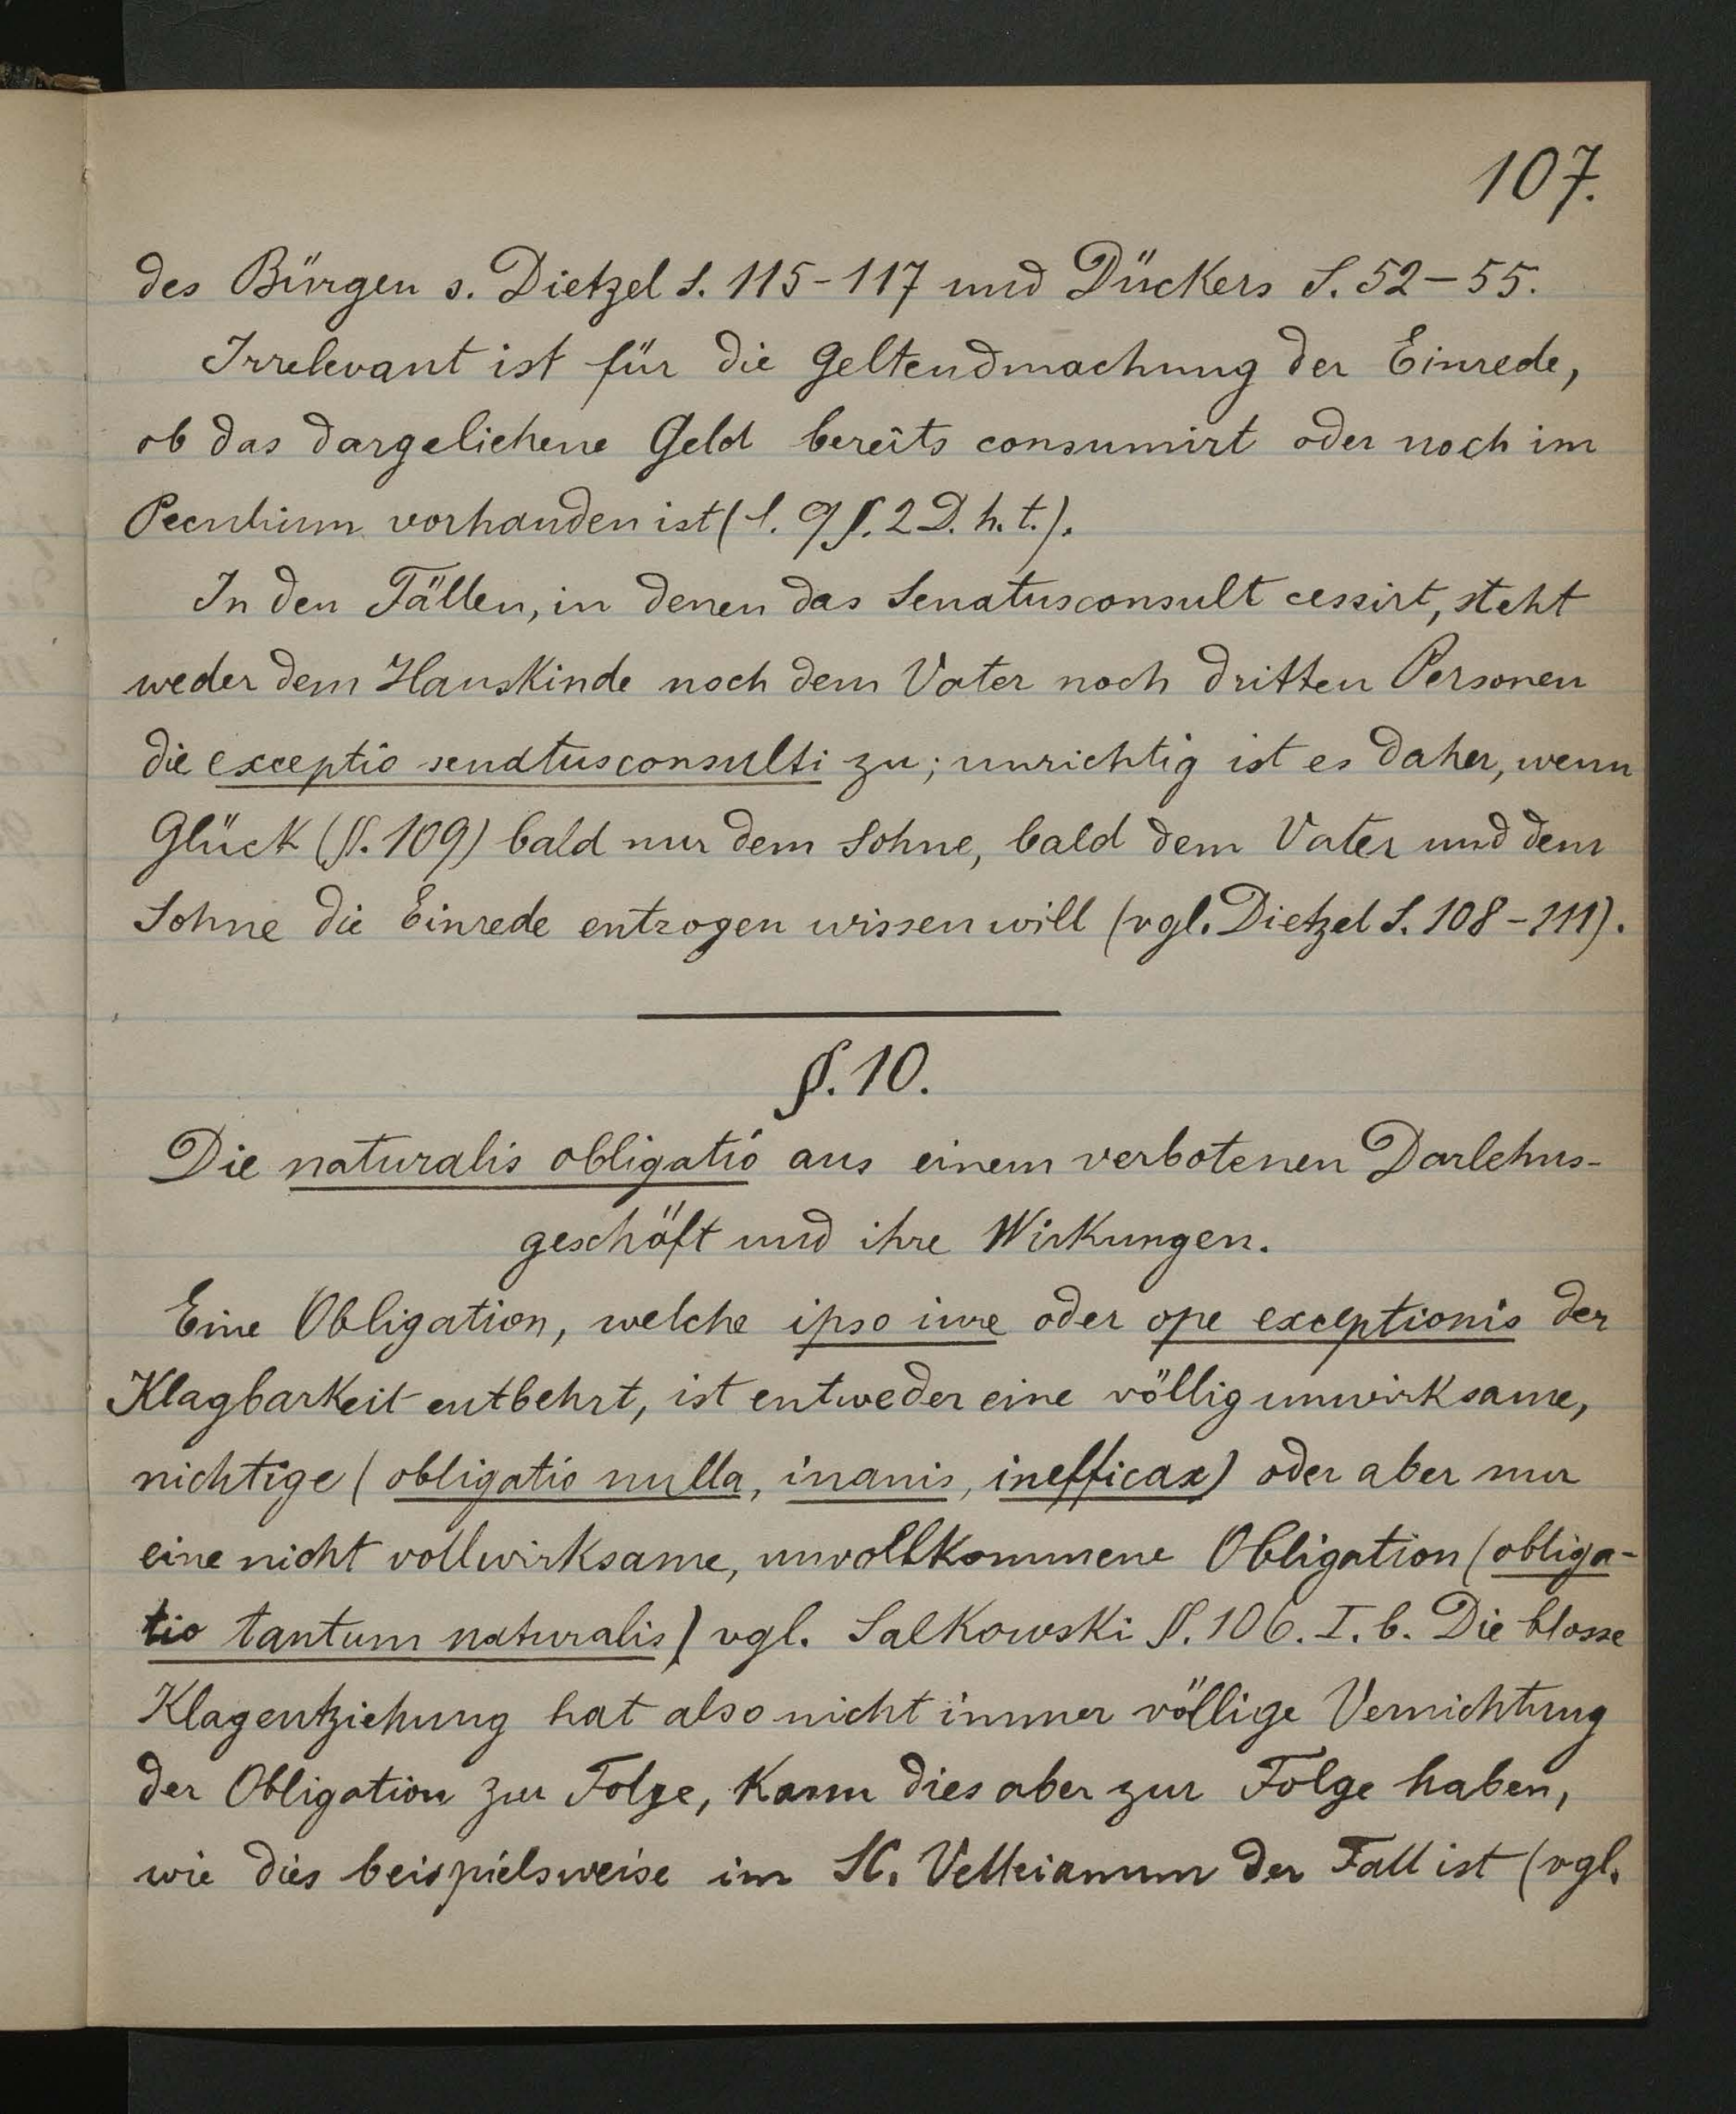 107.
des Bürgen s. Dietzel S. 115-117 und Dückers S. 52-55.
Irrelevant ist für die Geltendmachung der Einrede,
ob das dargeliehene Geld bereits consumirt oder noch im
Peculium vorhanden ist (l. 9 §. 2 D. h. t.).
In den Fällen, in denen das Senatusconsult cessirt, steht
weder dem Hauskinde noch dem Vater noch dritten Personen
die exceptio senatusconsulti zu; unrichtig ist es daher, wenn
Glück (§. 109) bald nur dem Sohne, bald dem Vater und dem
Sohne die Einrede entzogen wissen will (vgl. Dietzel S. 108-111).
§. 10.
Die naturalis obligatio aus einem verbotenen Darlehns-
geschäft und ihre Wirkungen.
Eine Obligation, welche ipso iure oder ope exceptionis der
Klagbarkeit entbehrt, ist entweder eine völlig unwirksame,
nichtige (obligatio nulla, inanis, inefficax) oder aber nur
eine nicht vollwirksame, unvollkommene Obligation (obliga-
tio tantum naturalis) vgl. Salkowski §. 106. I. b. Die blosse
Klagentziehung hat also nicht immer völlige Vernichtung
der Obligation zur Folge, kann dies aber zur Folge haben,
wie dies beispielsweise im SC. Velleianum der Fall ist (vgl.